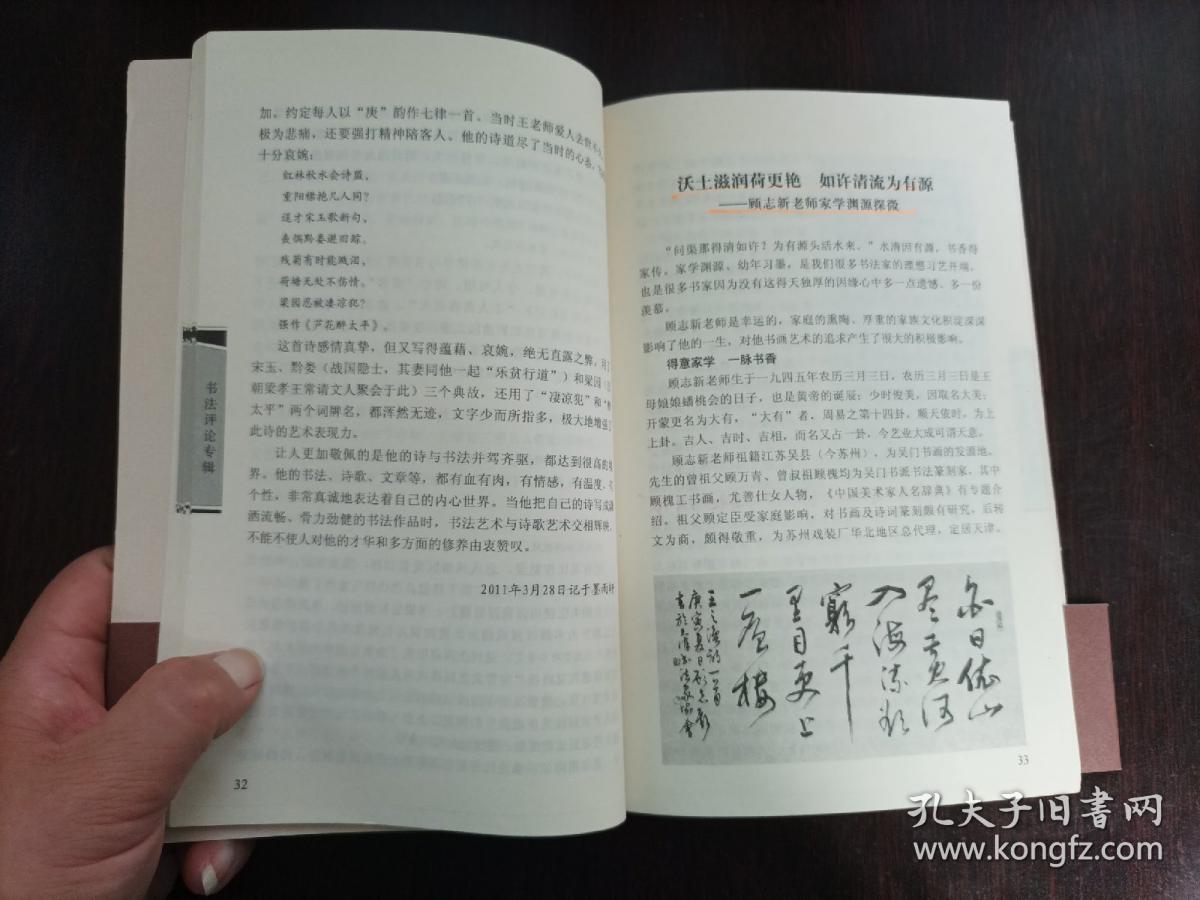 加。约定每人以“庚”韵作七律一首。当时王老师爱人去世不
极为悲痛，还要强打精神陪客人。他的诗道尽了当时的心态，
十分哀婉：
红林秋水会诗盟，
重阳襟抱几人同？
逞才宋玉歌新句，
丧偶黔娄避旧踪。
残菊有时能溅泪，
荷塘无处不伤情。
梁园忍被凄凉犯？
强作《芦花醉太平》。
这首诗感情真挚，但又写得蕴藉、哀婉，绝无直露之弊，用了
宋玉、黔娄（战国隐士，其妻同他一起“乐贫行道”）和梁园（
朝梁孝王常请文人聚会于此）三个典故，还用了“凄凉犯”和“
太平”两个词牌名，都浑然无迹，文字少而所指多，极大地增强了
此诗的艺术表现力。
让人更加敬佩的是他的诗与书法并驾齐驱，都达到很高的境
界。他的书法、诗歌、文章等，都有血有肉，有情感，有温度，
个性，非常真诚地表达着自己的内心世界。当他把自己的诗写成
洒流畅、骨力劲健的书法作品时，书法艺术与诗歌艺术交相辉映，
不能不使人对他的才华和多方面的修养由衷赞叹。
2011年3月28日记于墨雨轩
书法评论专辑
32
沃土滋润荷更艳 如许清流为有源
——顾志新老师家学渊源探微
“问渠那得清如许？为有源头活水来。”水清因有源，书香得
家传。家学渊源、幼年习墨，是我们很多书法家的理想习艺开端，
也是很多书家因为没有这得天独厚的因缘心中多一点遗憾、多一份
羡慕。
顾志新老师是幸运的，家庭的熏陶、厚重的家族文化积淀深深
影响了他的一生，对他书画艺术的追求产生了很大的积极影响。
得意家学 一脉书香
顾志新老师生于一九四五年农历三月三日，农历三月三日是王
母娘娘蟠桃会的日子，也是黄帝的诞辰；少时俊美，因取名大美；
开蒙更名为大有，“大有”者，周易之第十四卦，顺天依时，为上
上卦。吉人、吉时、吉相，而名又占一卦，今艺业大成可谓天意。
顾志新老师祖籍江苏吴县（今苏州），为吴门书画的发源地。
先生的曾祖父顾万青、曾叔祖顾槐均为吴门书派书法篆刻家，其中
顾槐工书画，尤善仕女人物，《中国美术家人名辞典》有专题介
绍。祖父顾定臣受家庭影响，对书画及诗词篆刻颇有研究，后转
文为商，颇得敬重，为苏州戏装厂华北地区总代理，定居天津。
白日依山
尽黄河
入海流欲
穷千
里目更上
一层楼
王之涣诗一首
庚寅夏日顾志新
33
孔夫子旧书网
www.kongfz.com